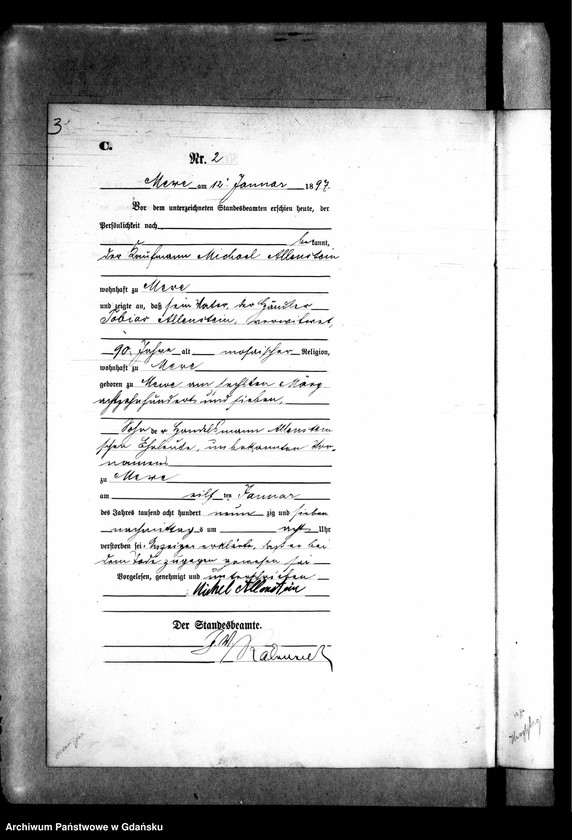 3
C.
Nr. 2
Mewe am 12. Januar 1897.
Vor dem unterzeichneten Standesbeamten erschien heute, der
Persönlichkeit nach
bekannt,
der Kaufmann Michael Allenstein
wohnhaft zu Mewe
und zeigte an, daß sein Vater, der Händler
Tobias Allenstein, verwitwet,
90 Jahre alt mosaischer Religion,
wohnhaft zu Mewe
geboren zu Mewe am sechsten März
achtzehnhundert und sieben,
Sohn der Handelsmann Allenstein
schen Eheleute, unbekannten Vor-
namens
zu Mewe
am eilften Januar
des Jahres tausend acht hundert neun zig und sieben
nachmittags um acht Uhr
verstorben sei. Anzeiger erklärte, daß er bei
dem Tode zugegen gewesen sei
Vorgelesen, genehmigt und unterschrieben
Michel Allenstein
Der Standesbeamte.
Archiwum Państwowe w Gdańsku